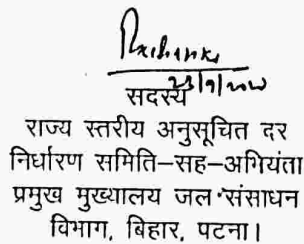 सदस्य
राज्य स्तरीय अनुसूचित दर
निर्धारण समिति–सह–अभियंता
प्रमुख मुख्यालय जल संसाधन
विभाग, बिहार, पटना।